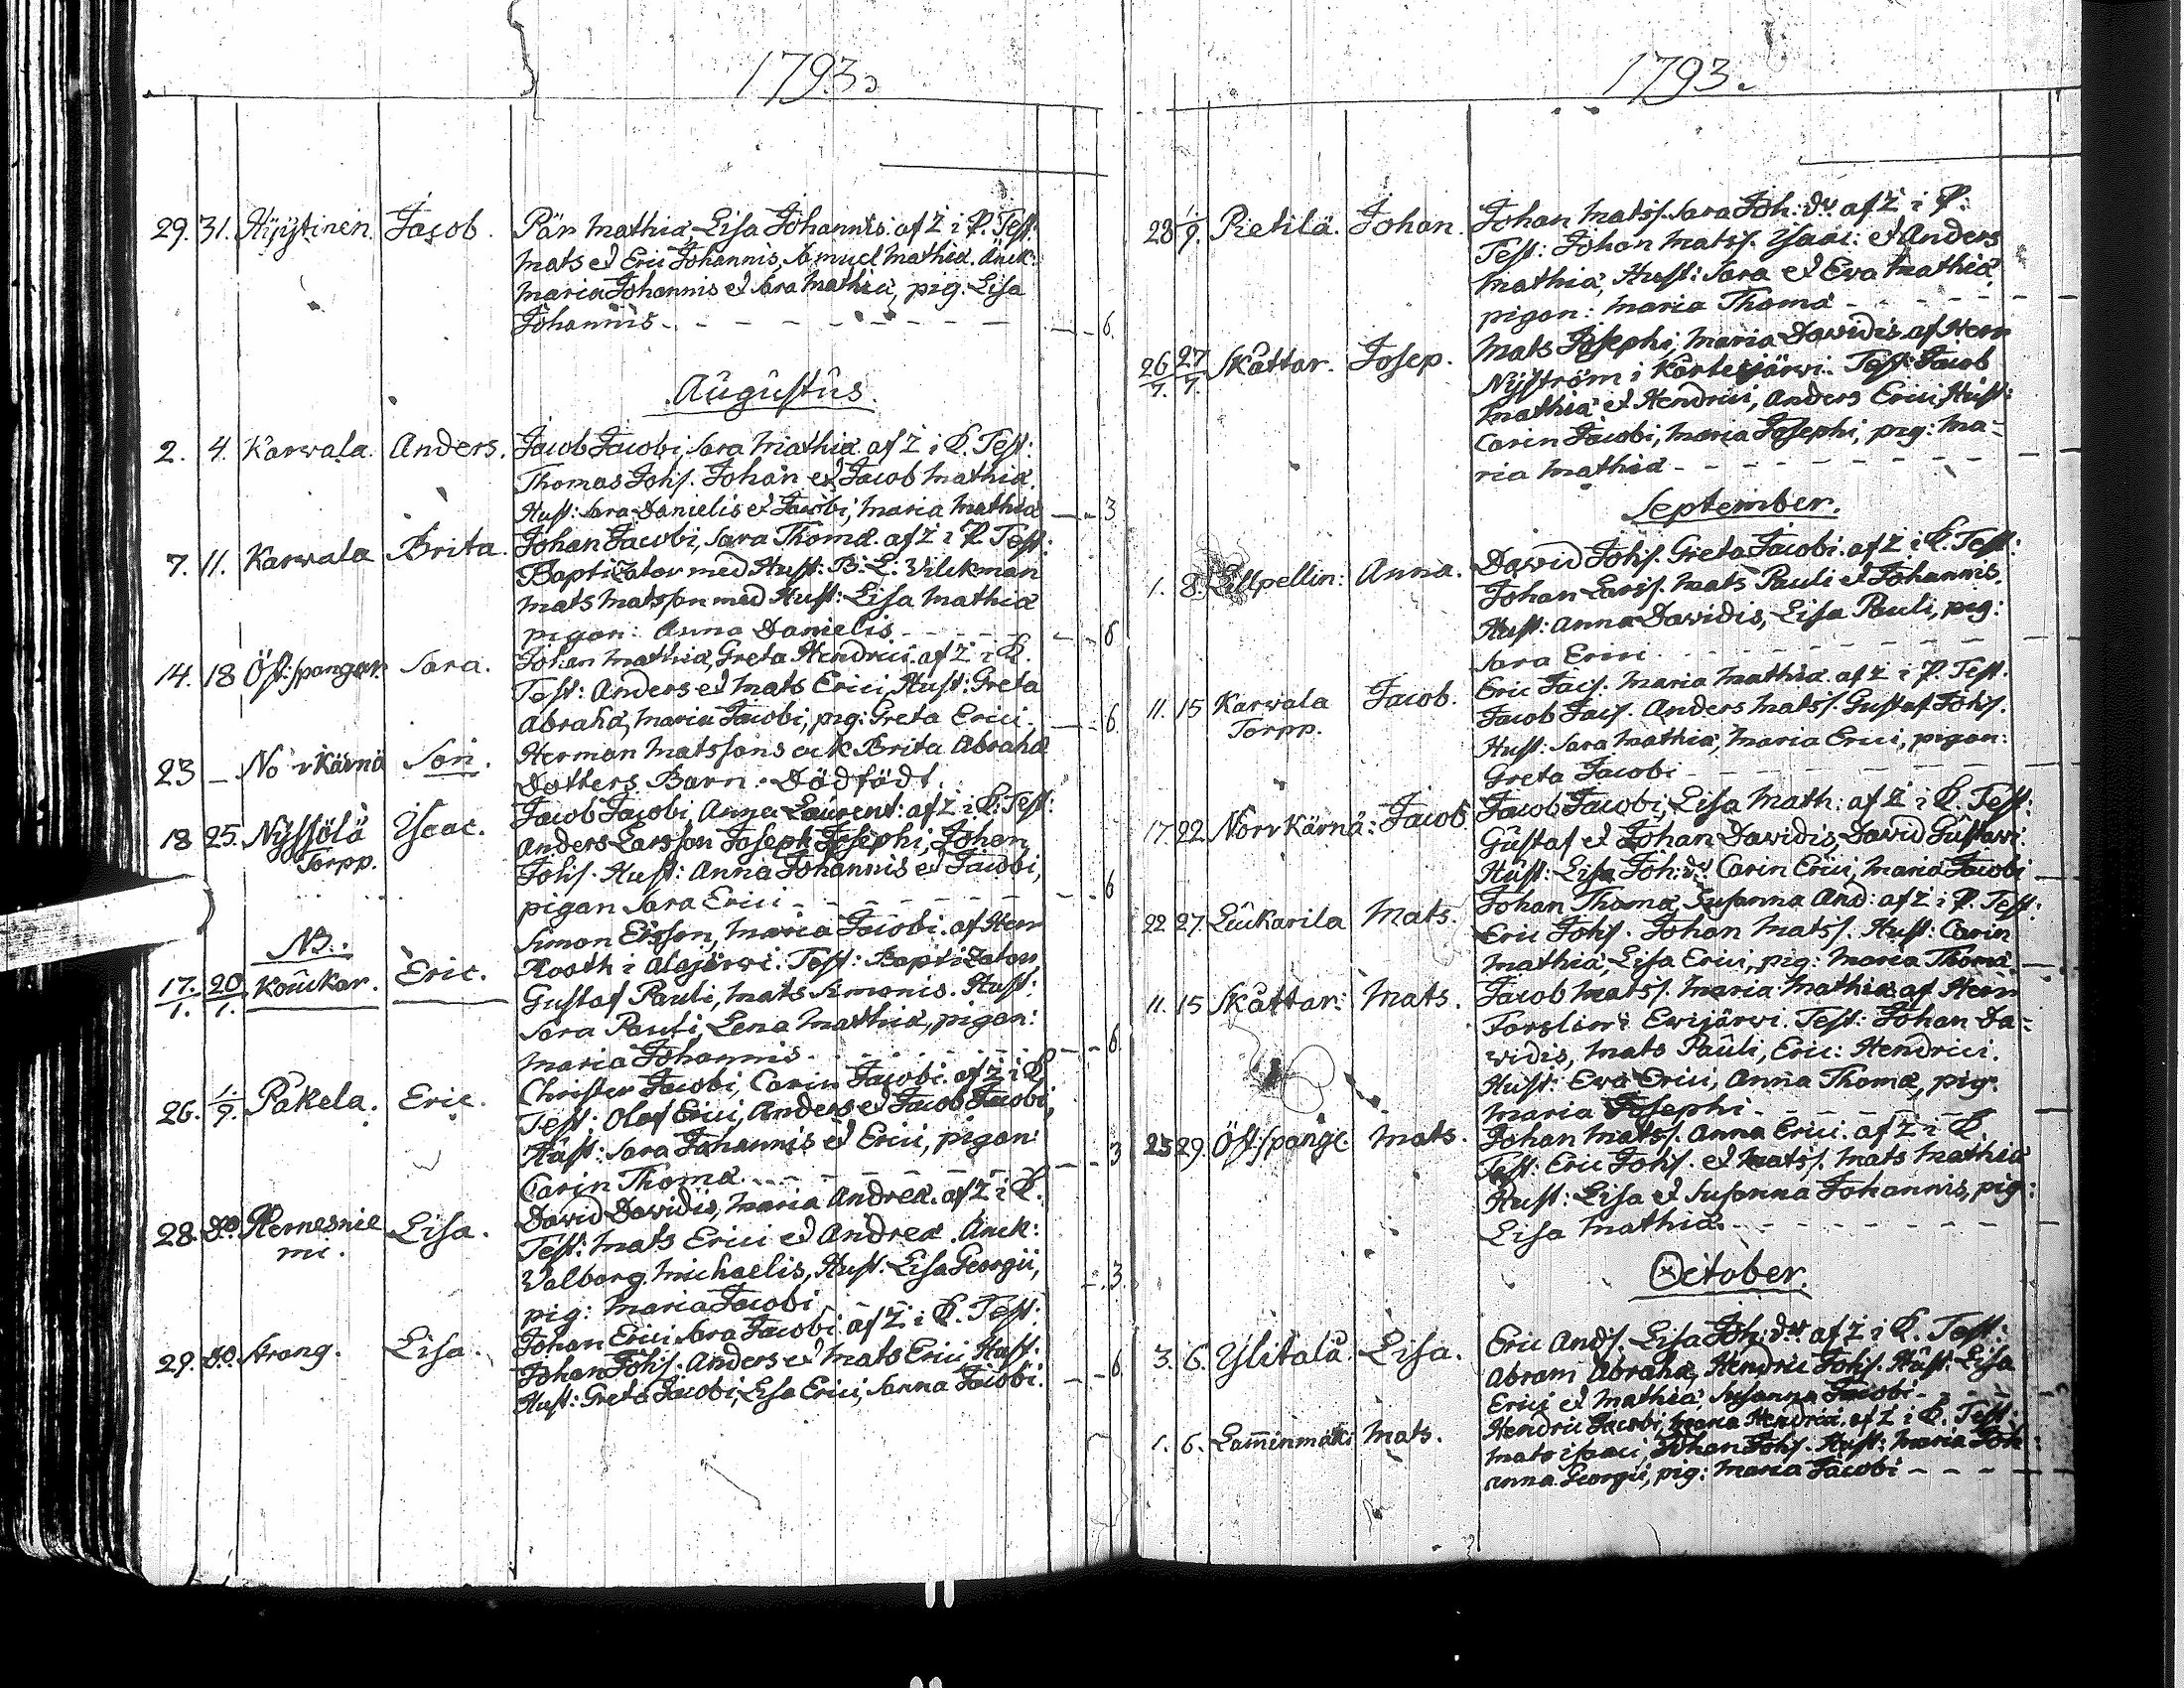 1793.
29. 31. Hyÿtinen. Jacob. Pär Mathiæ, Lisa Johannis. af Z i P. Test:
Mats et Eric Johannis, Samuel Mathiæ. Änck:
Maria Johannis et Sara Mathiæ, pig: Lisa
Johannis - - - - - - - - - 6.
Augustus.
2. 4. Karwala. Anders. Jacob Jacobi, Sara Mathiæ. af Z i P. Test:
Thomas Johs. Johan et Jacob Mathiæ.
Hust: Sara Danielis et Jacobi, Maria Mathiæ - - 3
7. 11. Karwala Brita. Johan Jacobi, Sara Thomæ. af Z i P. Test:
Baptizator med Hust: B: L: Wilckman
Mats Matsson med Hust: Lisa Mathiæ
pigan: Anna Danielis - - - - - 6
14. 18 Öst:spangar. Sara. Johan Mathiæ, Greta Hendrici. af Z i P.
Test: Anders et Mats Erici, Hust: Greta
Abrahæ, Maria Jacobi, pig: Greta Erici. - - 6
23 - Norrkärnä Son. Herman Matssons ock Brita Abrahæ
Dotters Barn. Dödfödt.
18 25. Nyssölä Isaac. Jacob Jacobi, Anna Laurent: af Z i P. Test:
Torpp. Anders Larsson Joseph Josephi, Johan
Johs. Hust: Anna Johannis et Jacobi,
pigan Sara Erici - - - - - - 6
NB: Simon Ersson, Maria Jacobi. af Herr
17. 20 Kouckar. Eric. Rooth i Alajärwi. Test: Baptizator,
1. 1. Gustaf Pauli, Mats Simonis. Hust:
Sara Pauli, Lena Mathiæ, pigan:
Maria Johannis - - - - - - 6.
26. 1/9. Pakela. Eric. Christer Jacobi, Carin Jacobi. af Z i P.
Test: Olof Erici, Anders et Jacob Jacobi,
Hust: Sara Johannis et Erici, pigan:
Carin Thomæ - - - - - - 3
28. do Hernesnie Lisa. David Davidis, Maria Andreæ. af Z i P.
mi. Test: Mats Erici et Andreæ. Änck:
Valborg Michaelis, Hust: Lisa Georgii,
pig: Maria Jacobi - - - 3.
29. do. Strang. Lisa. Johan Erici Sara Jacobi. af Z i P. Test:
Johan Johs. Anders et Mats Erici, Hust:
Hust: Greta Jacobi, Lisa Erici, Sanna Jacobi. - - 6
1793.
28 1/9. Pietilä. Johan. Johan Matss. Sara Joh: dr. af Z i P:
Test: Johan Matss. Isaac: et Anders
Mathiæ, Hust: Sara et Eva Mathiæ,
pigan: Maria Thomæ - - - - - -
26/7. 27/7. Skåttar. Josep. Mats Josephi, Maria Davidis. af Herr
Nyström i Kortesjärwi. Test: Jacob
Mathiæ et Hendrici, Anders Erici, Hust:
Carin Jacobi, Maria Josephi, pig: Ma-
ria Mathiæ - - - - - - - -
September.
1. 8. Lillpellin: Anna. David Johs. Greta Jacobi. af Z i P. Test:
Johan Larss. Mats Pauli et Johannis.
Hust: Anna Davidis, Lisa Pauli, pig:
Sara Erici - - - - - - -
11. 15 Karwala Jacob. Eric Jacs. Maria Mathiæ. af Z i P. Test:
Torpp. Jacob Jacs. Anders Matss. Gustaf Johs.
Hust: Sara Mathiæ, Maria Erici, pigan:
Greta Jacobi - - - - - - -
17. 22. Norrkärnä: Jacob. Jacob Jacobi, Lisa Math: af Z i P. Test:
Gustaf et Johan Davidis, David Gustavi.
Hust: Lisa Joh: dr Carin Erici, Maria Jacobi -
22 27. Luukarila Mats. Johan Thomæ, Susanna And: af Z i P. Test:
Eric Johs. Johan Matss. Hust: Carin
Mathiæ, Lisa Erici, pig: Maria Thomæ. -
11. 15 Skåttar: Mats. Jacob Matss. Maria Mathiæ af Herr
Forslin i Ewijärwi. Test: Johan Da-
vidis, Mats Pauli, Eric: Hendrici.
Hust: Eva Erici, Anna Thomæ, pig:
Maria Josephi - - - - - -
23 29. Öst:spange. Mats. Johan Matss. Anna Erici. af Z i P.
Test: Eric Johs. et Matss. Mats Mathiæ
Hust: Lisa et Susanna Johannis, pig:
Lisa Mathiæ. - - - - - -
October.
3. 6. Ylitalå. Lisa. Eric Ands. Lisa Joh: dr af Z i P. Test:
Abram Abrahæ, Hendric Johs. Hust: Lisa
Erici et Mathiæ, Susanna Jacobi - - - -
1. 6. Lam̄inmäki Mats. Hendric Jacobi, Maria Hendrici. af Z i P. Test:
Mats Isaaci, Johan Johs. Hust: Maria Joh:
Anna Georgii, pig: Maria Jacobi - - - -